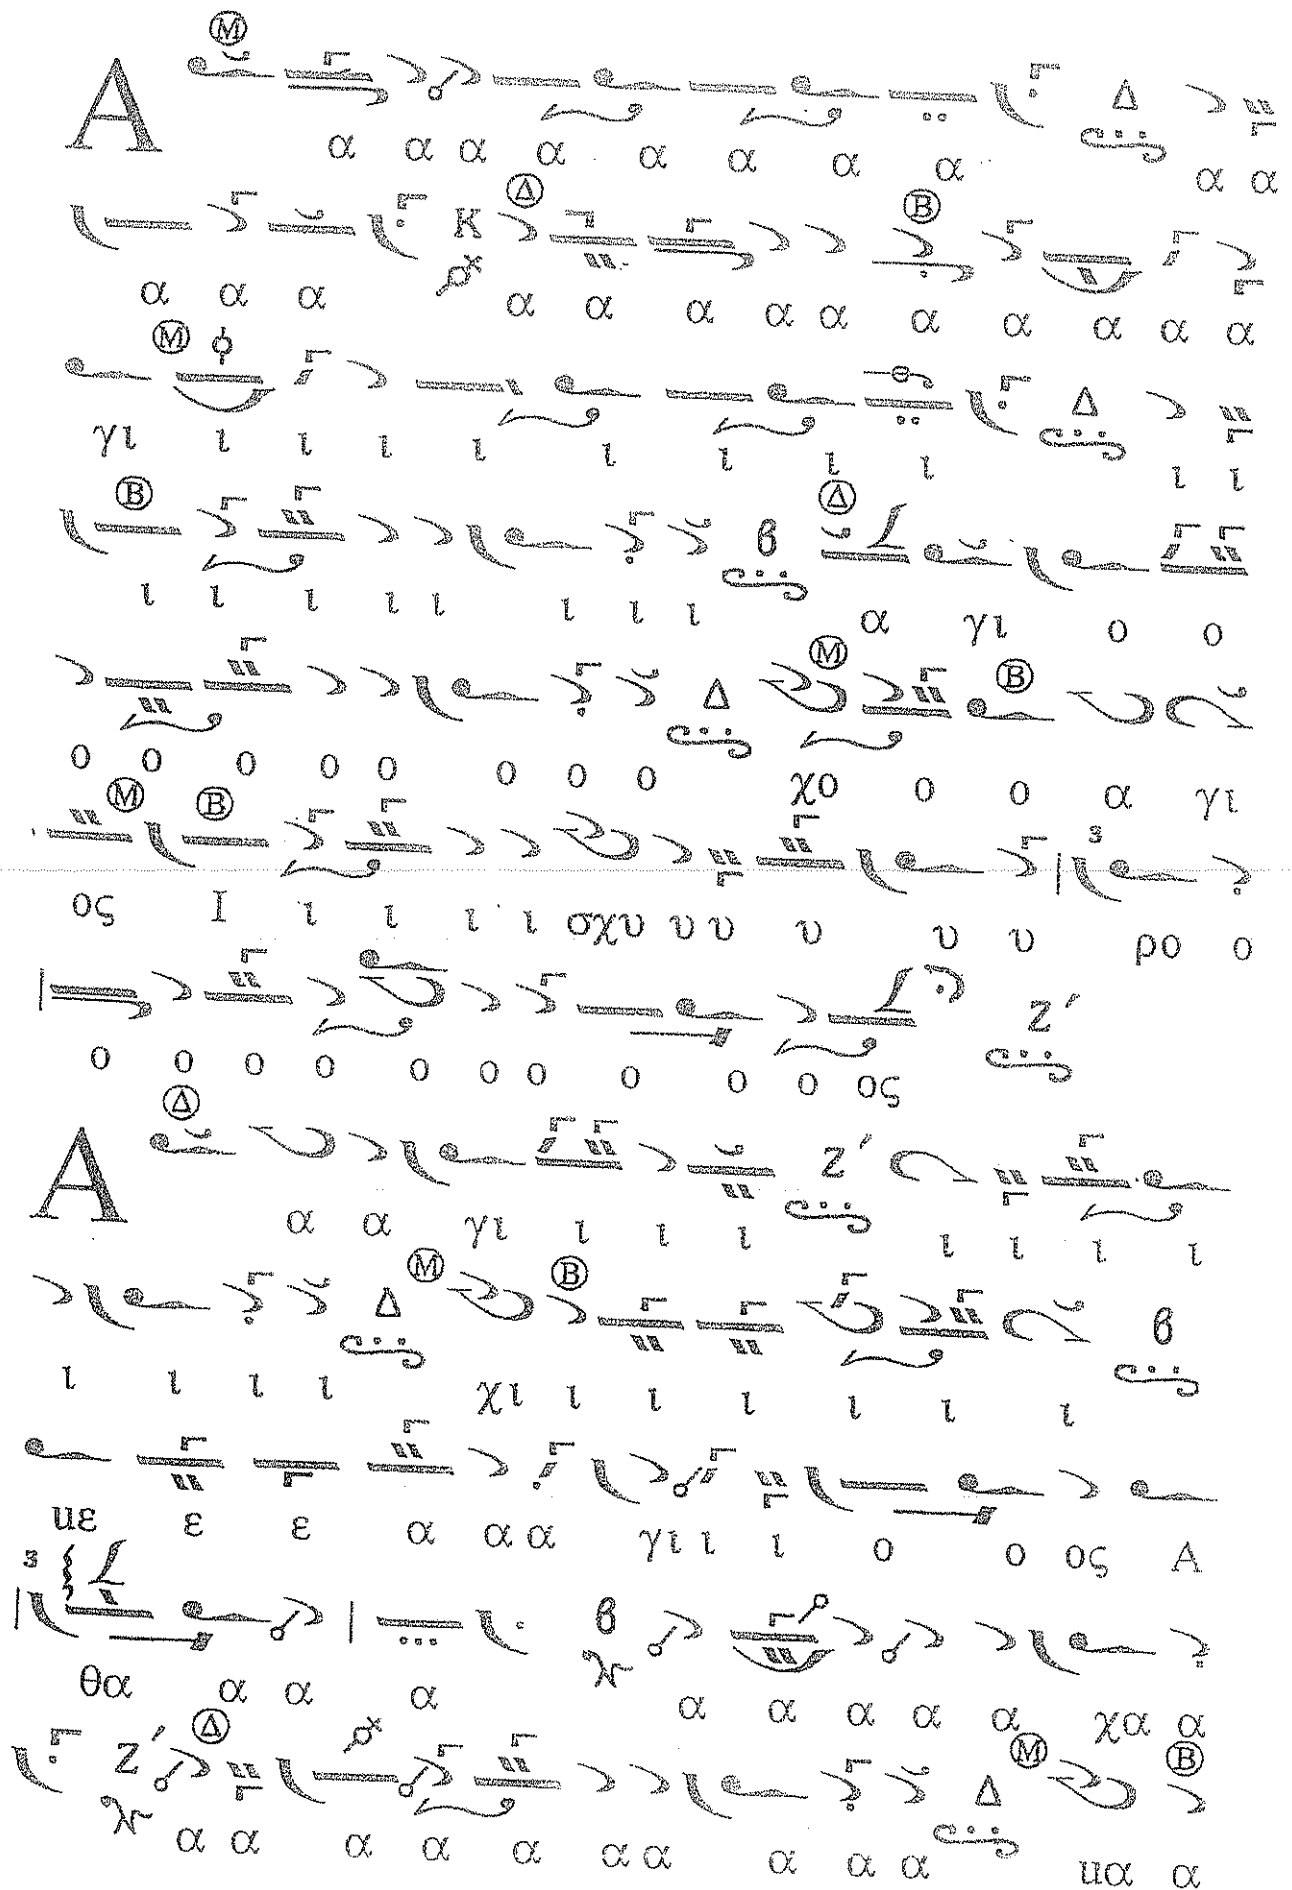 Ⓜ
Α Δ
α α α α α α α α α α
Κ Ⓓ Ⓑ
α α α α α α α α α α α α α
Ⓜ Δ
γι ι ι ι ι ι ι ι ι ι ι
Ⓑ β Ⓓ
ι ι ι ι ι ι ι ι α γι ο ο
Δ Ⓜ Ⓑ
ο ο ο ο ο ο ο ο χο ο ο α γι
Ⓜ Ⓑ
ος Ι ι ι ι ι σχυ υ υ υ υ υ ρο ο
Ζ′
ο ο ο ο ο ο ο ο ο ο ος
Ⓓ
Α Ζ′
α α γι ι ι ι ι ι ι ι
Δ Ⓜ Ⓑ β
ι ι ι ι χι ι ι ι ι ι ι
ιιε ε ε α α α γι ι ι ο ο ος Α
β
θα α α α α α α α α χα α
Ζ′ Ⓓ Δ Ⓜ Ⓑ
α α α α α α α α α α ιια α